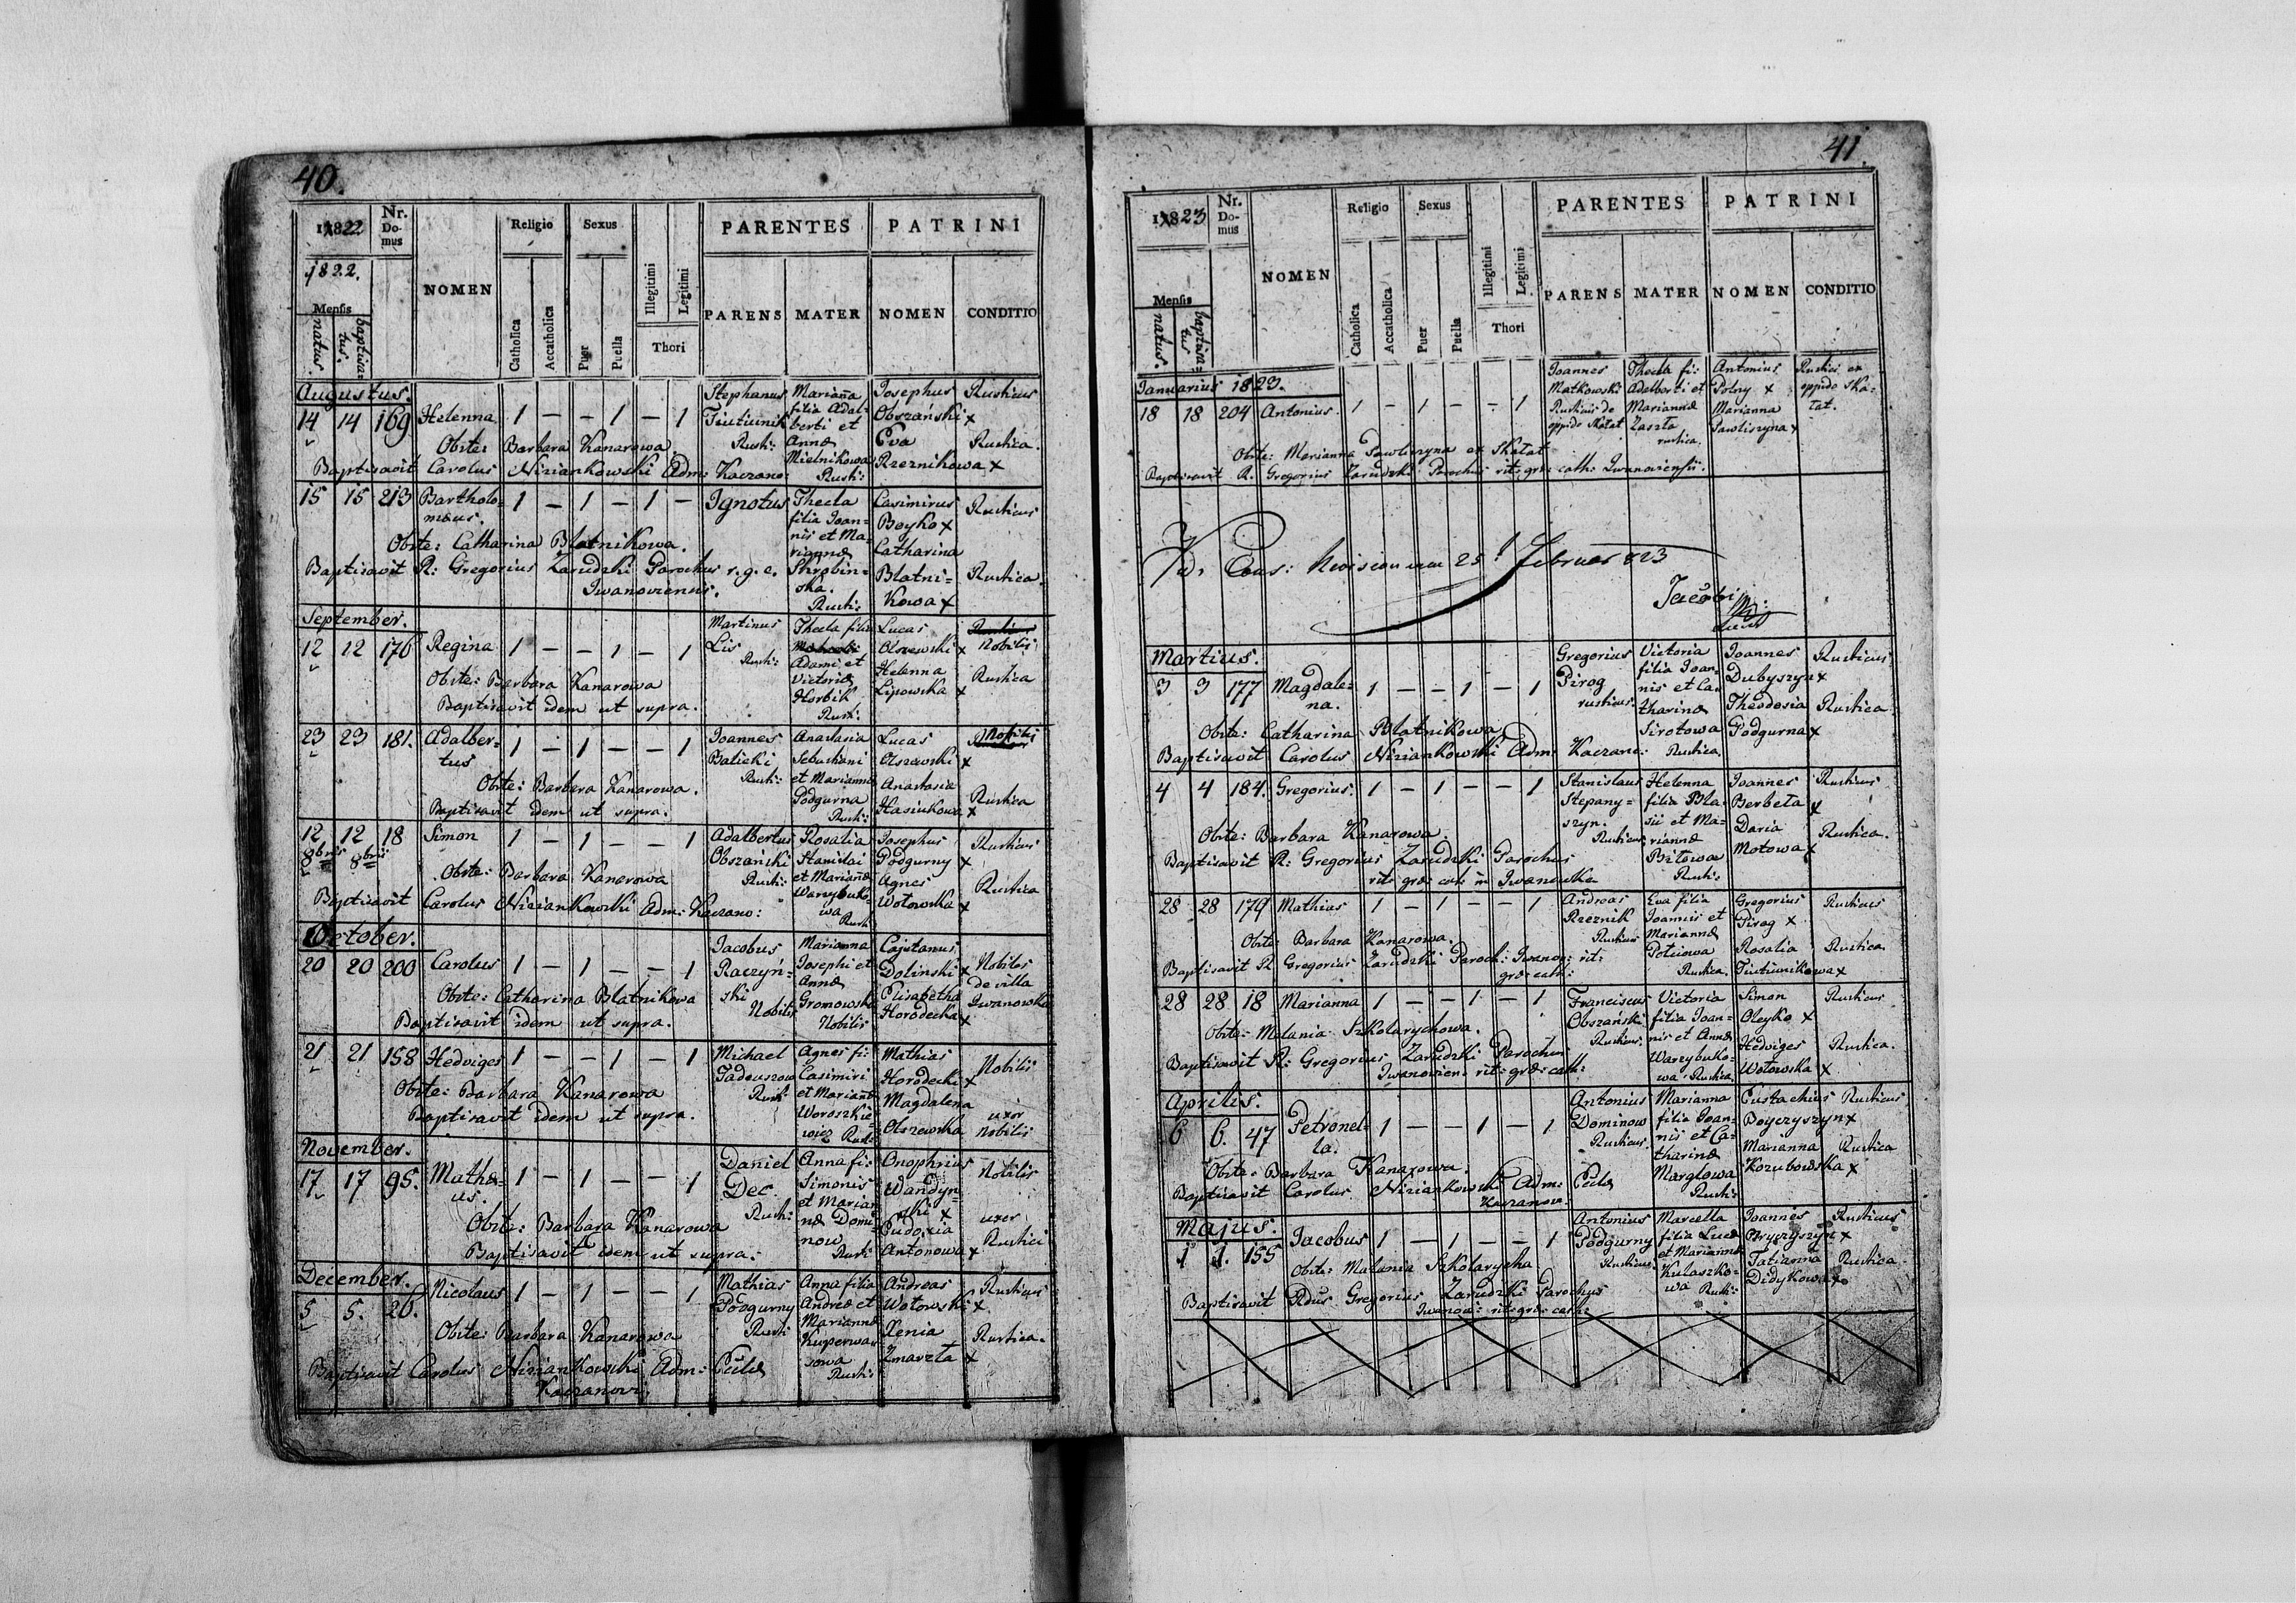 40.
1822 Nr. Domus NOMEN Religio Sexus Illegitimi Legitimi Thori PARENTES PATRINI
1822.
Mensis natus. baptizatus. Catholica Accatholica Puer Puella PARENS MATER NOMEN CONDITIO
Augustus.
14 14 169 Helenna 1 — — 1 — 1 Stephanus Tiutiunik Rusti: Marianna filia Adalberti et Annæ Mielnikowa Rusti: Josephus Obszański x Eva Rzeznikowa x Rusticus Rustica.
Obste: Barbara Kanarowa
Baptisavit Carolus Nizian­kowski Adm: Kaczano:
15 15 213 Bartholomæus. 1 — 1 — 1 — Ignotus Thecla filia Joannis et Mariannæ Skrobinska. Rusti: Casimirus Boyko x Catharina Blatnikowa x Rusticus Rustica.
Obste: Catharina Blatnikowa.
Baptisavit R: Gregorius Zarudzki Parochus r. g. c. Iwanoviensis.
September.
12 12 176 Regina 1 — — 1 — 1 Martinus Lis Rusti: Thecla filia Adami et Victoriæ Horbik Rusti: Lucas Olszewski x Helenna Lipowska x Nobilis Rustica
Obste: Barbara Kanarowa
Baptisavit idem ut supra.
23 23 181. Adalbertus 1 — 1 — — 1 Joannes Balicki Rusti: Anastasia Sebastiani et Mariannæ Podgurna Rusti: Lucas Olszewski x Anastasia Hasiukowa x Nobilis Rustica
Obste: Barbara Kanarowa.
Baptisavit idem ut supra.
12 8bris 12 8bris 18 Simon 1 — 1 — — 1 Adalbertus Obszański Rusti: Rosalia Stanislai et Mariannæ Warzybukowa Rusti: Josephus Podgurny x Agnes Wotowska x Rusticus Rustica
Obste: Barbara Kanarowa
Baptisavit Carolus Niziankowski Adm: Kaczano:
October.
20 20 200 Carolus 1 — 1 — — 1 Jacobus Raczyński Nobilis Marianna Josephi et Annæ Gromowska Nobilis Cajetanus Dolinski x Elisabetha Horodecka x Nobiles de villa Iwanowka
Obste: Catharina Blatnikowa
Baptisavit idem ut supra.
21 21 158 Hedviges 1 — — 1 — 1 Michael Tadeuszow Rusti: Agnes fi: Casimiri et Mariannæ Woroszkiewicz Rusti: Mathias Horodecki x Magdalena Olszewska Nobilis uxor Nobilis
Obste: Barbara Kanarowa
Baptisavit idem ut supra.
November.
17 17 95. Mathæus. 1 — 1 — — 1 Daniel Dec. Rusti: Anna fi: Simonis et Mariannæ Dominow Rusti: Onophrius Wandynski x Eudoxia Antonowa x Nobilis uxor Rustici
Obste: Barbara Kanarowa
Baptisavit idem ut supra.
December.
5 5. 26. Nicolaus 1 — 1 — — 1 Mathias Podgurny Rusti: Anna filia Andreæ et Mariannæ Kuperwasowa Rusti: Andreas Wotowski x Xenia Zmarzta x Rusticus Rustica.
Obste: Barbara Kanarowa
Baptisavit Carolus Niziankowski Adm: Eccl: Kaczanov:
41.
1823 Nr. Domus NOMEN Religio Sexus Illegitimi Legitimi Thori PARENTES PATRINI
Mensis natus. baptizatus Catholica Accatholica Puer Puella PARENS MATER NOMEN CONDITIO
Januarius 1823.
18 18 204 Antonius. 1 — 1 — — 1 Joannes Matkowski Rusticus de oppido Skałat Thecla fi: Adalberti et Mariannæ Zaszta rustica. Antonius Polny x Marianna Pawliszyna x Rustici ex oppido Skałat.
Obste: Marianna Pawliszyna ex Skałat
Baptisavit R. Gregorius Zarudzki Parochus rit: græ: cath: Iwanoviensis.
Revision 25 Februar 823
Jacobi
Martius.
3 3 177 Magdalena. 1 — — 1 — 1 Gregorius Pirog rusticus. Victoria filia Joannis et Catharinæ Sirotowa Rustica. Joannes Dubyszyn x Theodosia Podgurna x Rusticus Rustica
Obste: Catharina Blatnikowa
Baptisavit Carolus Niziankowski Adm: Kaczano:
4 4 184. Gregorius. 1 — 1 — — 1 Stanislaus Stepanyszyn. Rusticus Helenna filia Blasii et Mariannæ Bitowa Rusti: Joannes Berbeta x Daria Motowa x Rusticus Rustica.
Obste: Barbara Kanarowa.
Baptisavit R: Gregorius Zarudzki Parochus rit: græ: cath: in Iwanowka
28 28 179 Mathias 1 — 1 — — 1 Andreas Rzeznik Rusticus Eva filia Joannis et Mariannæ Potiowa Rustica. Gregorius Pirog x Rosalia Tiutiunikowa x Rusticus Rustica
Obste: Barbara Kanarowa.
Baptisavit R Gregorius Zarudzki Paroch: Iwanov: rit: græ: cath:
28 28 18 Marianna 1 — — 1 — 1 Franciscus Obszański Rusticus. Victoria filia Joannis et Annæ Warzybukowa Rustica. Simon Oleyko x Hedviges Wotowska x Rusticus Rustica.
Obste: Melania Szkolarychowa.
Baptisavit R: Gregorius Zarudzki Parochus Iwanovien: rit: græ: cath:
Aprilis.
6 6. 47 Petronella. 1 — — 1 — 1 Antonius Dominow Rusticus. Marianna filia Joannis et Catharinæ Margtowa Rusti: Eustachius Boyczyszyn x Marianna Kozubowska x Rusticus Rustica
Obste: Barbara Kanarowa.
Baptisavit Carolus Niziankowski Adm: Eccle Kaczanov:
Majus.
1 1. 155 Jacobus 1 — 1 — — 1 Antonius Podgurny Rusticus. Marcella filia Lucæ et Mariannæ Kulaszkowa Rusti: Joannes Bryczyszyn x Tatianna Didykowa x Rusticus Rustica
Obste: Melania Szkolarycha
Baptisavit Rdus Gregorius Zarudzki Parochus Iwanov: rit: græ: cath: